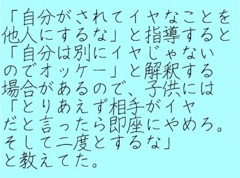 「自分がされてイヤなことを
他人にするな」と指導すると
「自分は別にイヤじゃない
のでオッケー」と解釈する
場合があるので、子供には
「とりあえず相手がイヤ
だと言ったら即座にやめろ。
そして二度とするな」
と教えてた。